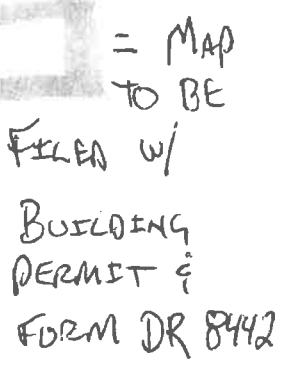 = MAP
TO BE
FILED W/
BUILDING
PERMIT &
FORM DR 8442